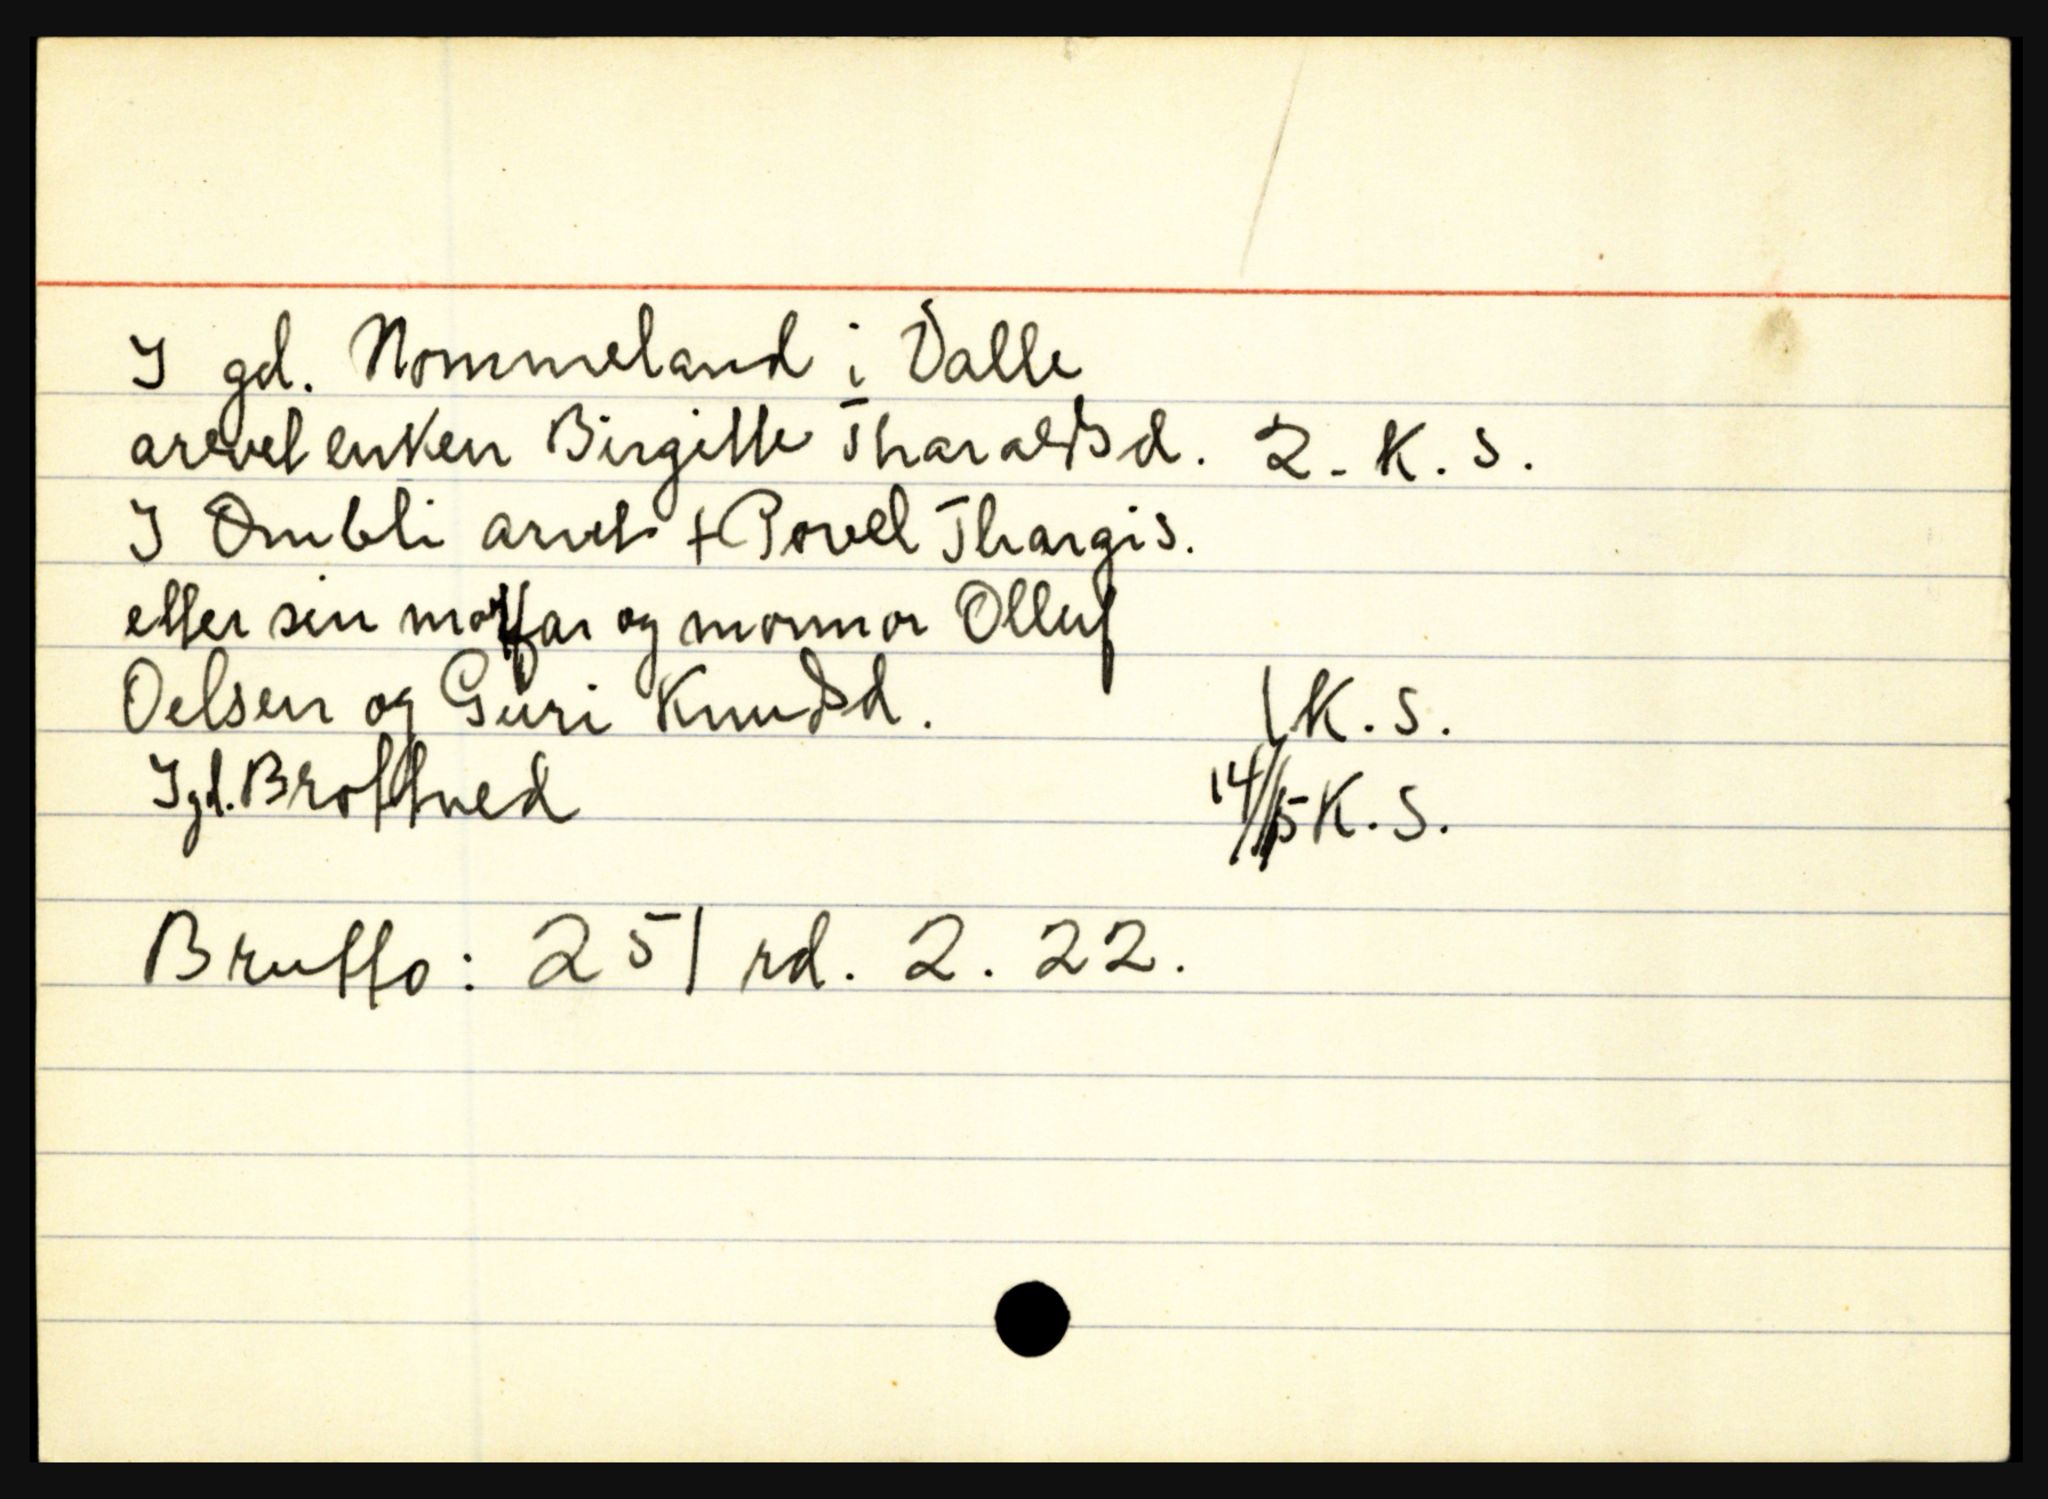 I gd. Nommeland i Valle
arevet enken Birgitte Tharaldsd. 2. K. S.
I Ombli arvet + Povel Thargis.
etter sin morfar og mormor Olluf
Oelsen og Guri Knudsd. 1 K. S.
I gd. Brottved 14/15 K. S.
Brutto: 251 rd. 2. 22.